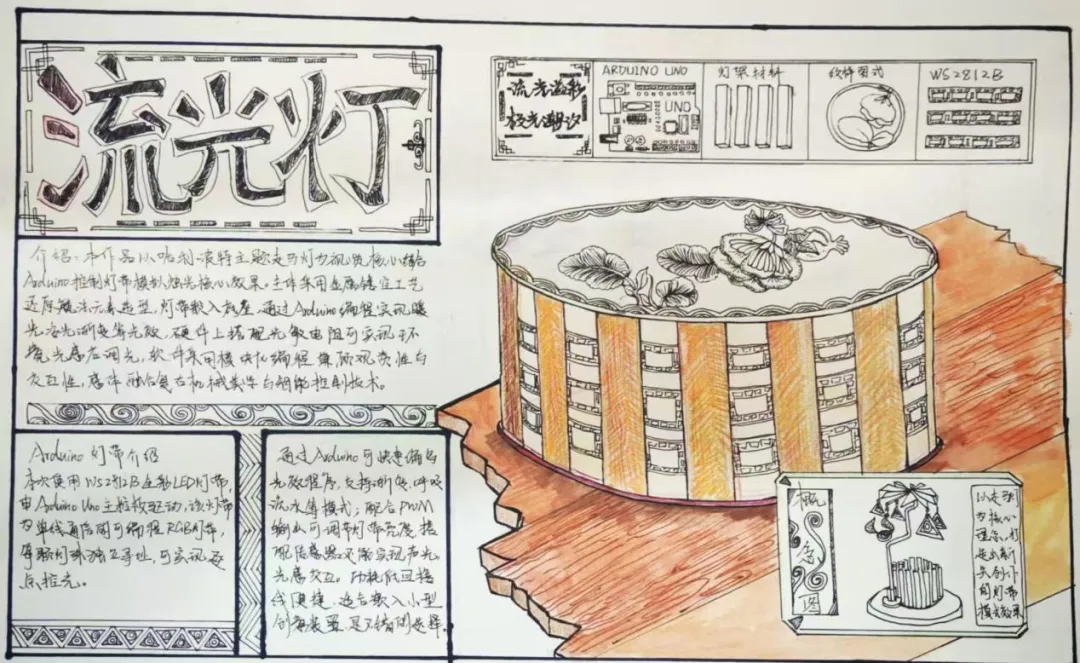 流光灯
流光溢彩
极光潮汐
ARDUINO UNO
UNO
灯架材料
纹样图式
WS2812B
介绍：本作品以哈利波特主题走马灯为视觉核心结合
Arduino控制灯带模拟烛光核心效果。主体采用金属錾花工艺
还原魔法元素造型，灯带嵌入底座，通过Arduino编程实现暖
光冷光渐变等光效，硬件上搭配光敏电阻可实现环
境光感应调光，软件采用模块化编程兼顾观赏性与
交互性，整体融合复古机械美学与智能控制技术。
Arduino灯带介绍
本次使用WS2812B全彩LED灯带
由Arduino Uno主控板驱动，该灯带
为单线通信可编程RGB灯带，
每颗灯珠独立寻址，可实现逐
点控光。
通过Arduino可快速编写
光效程序，支持渐变、呼吸
流水等模式；配合PWM
输出可调节灯带亮度，搭
配传感器还能实现声光、
光感交互。功耗低且接
线便捷，适合嵌入小型
创意装置，是
概念图
以走马灯
为核心